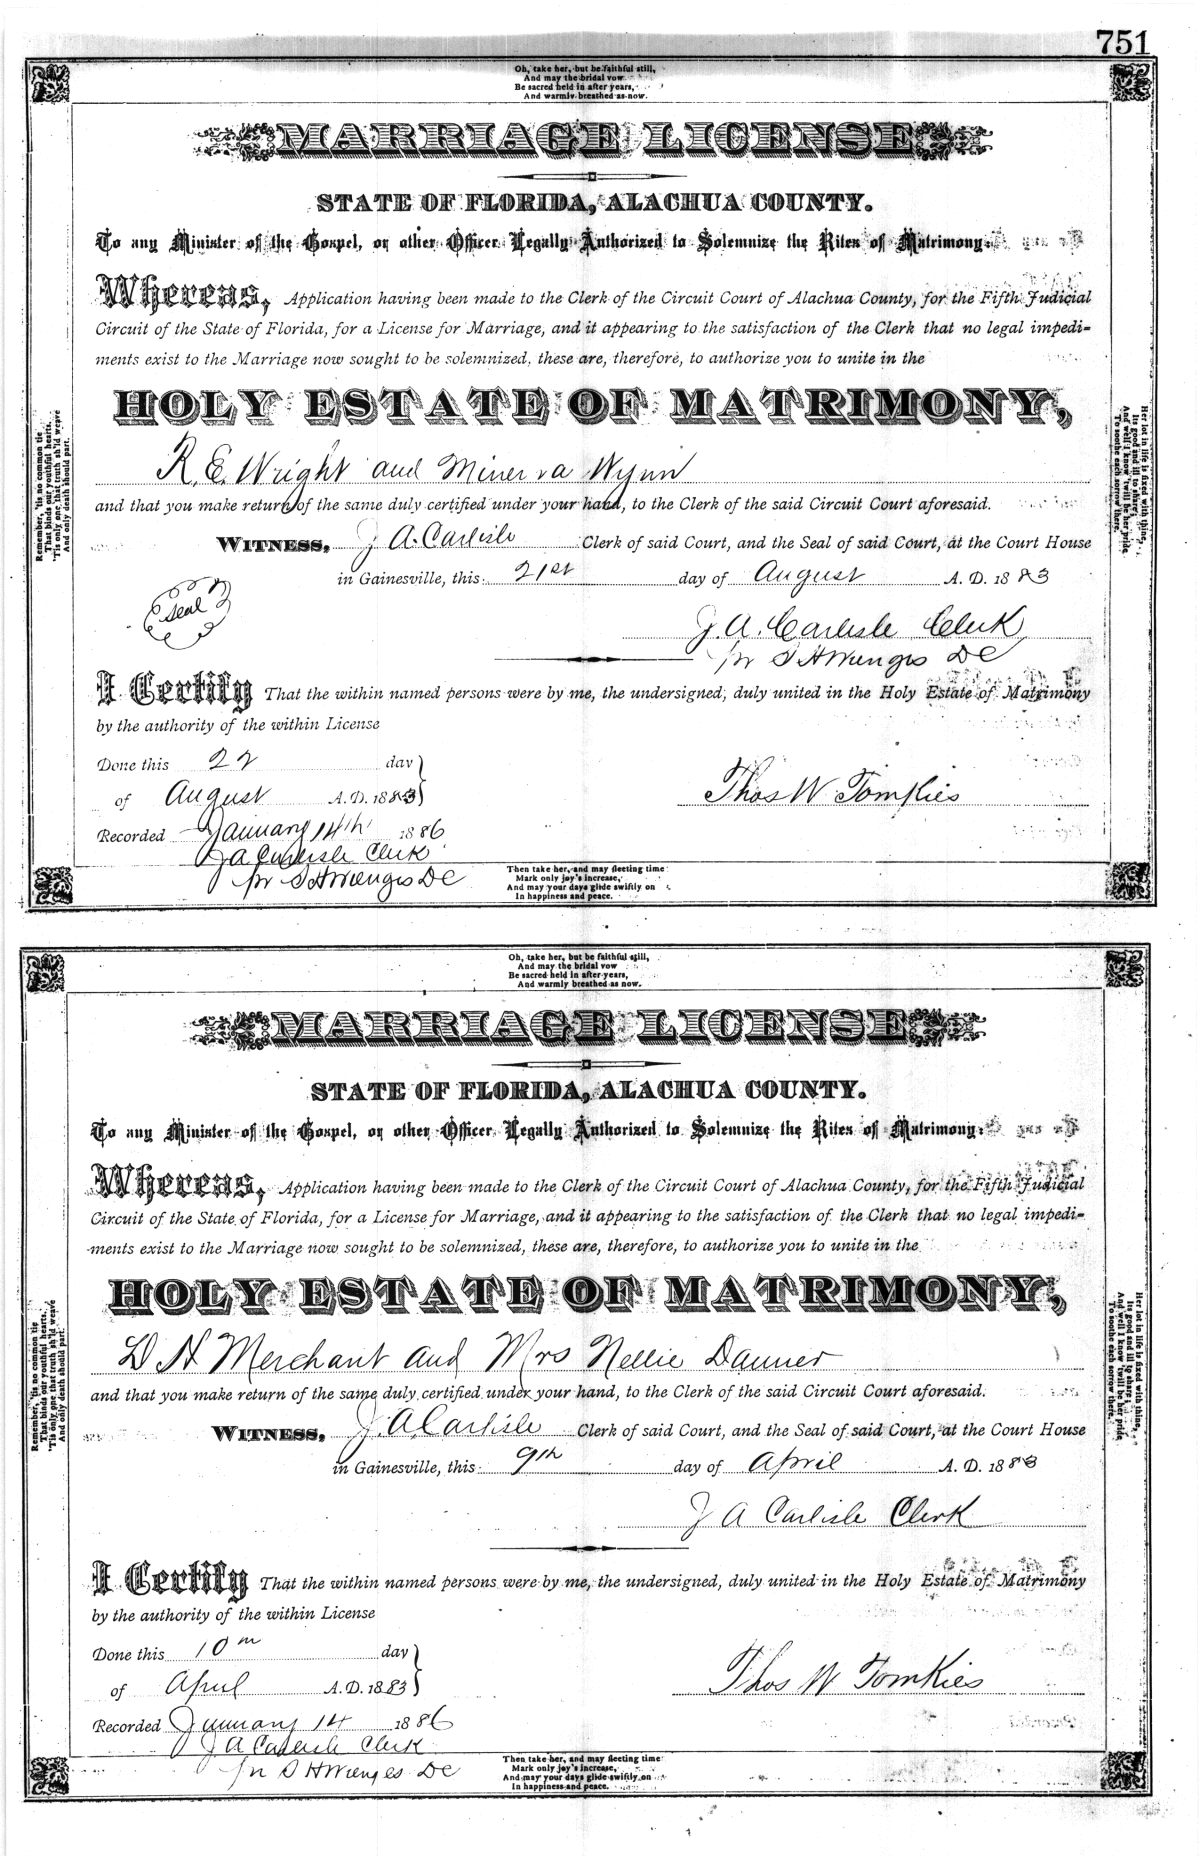 751
Oh, take her, but be faithful still,
And may the bridal vow
Be sacred held in after years,
And warmly breathed as now.
MARRIAGE LICENSE
STATE OF FLORIDA, ALACHUA COUNTY.
To any Minister of the Gospel, or other Officer Legally Authorized to Solemnize the Rites of Matrimony:
Whereas, Application having been made to the Clerk of the Circuit Court of Alachua County, for the Fifth Judicial
Circuit of the State of Florida, for a License for Marriage, and it appearing to the satisfaction of the Clerk that no legal impedi-
ments exist to the Marriage now sought to be solemnized, these are, therefore, to authorize you to unite in the
HOLY ESTATE OF MATRIMONY,
R. E. Wright and Minerva Wynn
and that you make return of the same duly certified under your hand, to the Clerk of the said Circuit Court aforesaid.
WITNESS, J A. Carlisle Clerk of said Court, and the Seal of said Court, at the Court House
in Gainesville, this 21st day of August A. D. 1883
Seal
J. A. Carlisle Clerk
pr S H Wienges DC
I Certify That the within named persons were by me, the undersigned, duly united in the Holy Estate of Matrimony
by the authority of the within License
Done this 22 day
of August A.D. 1883
Thos W Tomkies
Recorded January 14th 1886
J A Carlisle Clerk
pr S H Wienges DC
Remember, 'tis no common tie
That binds our youthful hearts,
'Tis only one that truth sh'ld weave
And only death should part.
Her lot in life is fixed with thine,
Its good and ill to share;
And well I know 'twill be her pride
To soothe each sorrow there.
Then take her, and may fleeting time
Mark only joy's increase,
And may your days glide swiftly on
In happiness and peace.
Oh, take her, but be faithful still,
And may the bridal vow
Be sacred held in after years,
And warmly breathed as now.
MARRIAGE LICENSE
STATE OF FLORIDA, ALACHUA COUNTY.
To any Minister of the Gospel, or other Officer Legally Authorized to Solemnize the Rites of Matrimony:
Whereas, Application having been made to the Clerk of the Circuit Court of Alachua County, for the Fifth Judicial
Circuit of the State of Florida, for a License for Marriage, and it appearing to the satisfaction of the Clerk that no legal impedi-
ments exist to the Marriage now sought to be solemnized, these are, therefore, to authorize you to unite in the
HOLY ESTATE OF MATRIMONY,
D H Merchant and Mrs Nellie Danner
and that you make return of the same duly certified under your hand, to the Clerk of the said Circuit Court aforesaid.
WITNESS, J. A Carlisle Clerk of said Court, and the Seal of said Court, at the Court House
in Gainesville, this 9th day of April A. D. 1883
J A Carlisle Clerk
I Certify That the within named persons were by me, the undersigned, duly united in the Holy Estate of Matrimony
by the authority of the within License
Done this 10th day
of April A.D. 1883
Thos W Tomkies
Recorded January 14 1886
J A Carlisle Clerk
pr S H Wienges DC
Remember, 'tis no common tie
That binds our youthful hearts,
'Tis only one that truth sh'ld weave
And only death should part.
Her lot in life is fixed with thine,
Its good and ill to share;
And well I know 'twill be her pride
To soothe each sorrow there.
Then take her, and may fleeting time
Mark only joy's increase,
And may your days glide swiftly on
In happiness and peace.